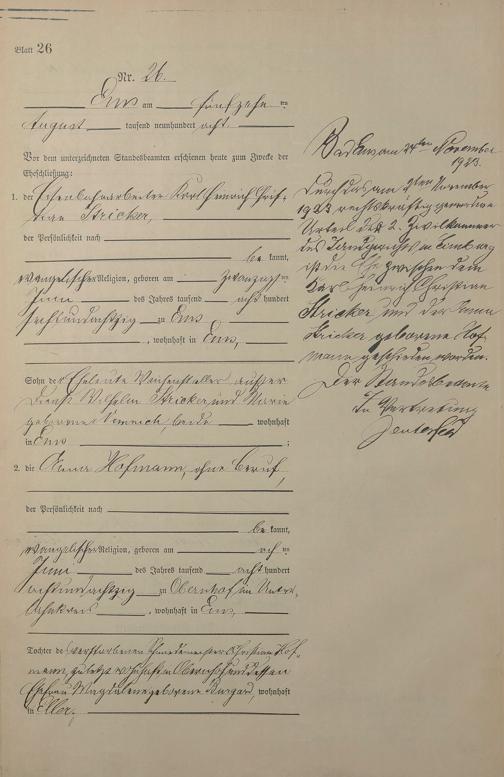 Blatt 26
Nr. 26.
Ems am fünfzehn ten
August tausend neunhundert acht.
Vor dem unterzeichneten Standesbeamten erschienen heute zum Zwecke der
Eheschließung:
1. der Eisenbahnarbeiter Karl Heinrich Chris-
tian Stricker,
der Persönlichkeit nach
be kannt,
evangelischer Religion, geboren am zwanzigs ten
Juni des Jahres tausend acht hundert
sechsundachtzig zu Ems
, wohnhaft in Ems,
Sohn der Eheleute Weichensteller außer
Dienst Wilhelm Stricker und Marie
geborenen beide wohnhaft
in Ems ;
2. die Anna Hofmann, ohne Beruf,
der Persönlichkeit nach
be kannt,
evangelischer Religion, geboren am ach ten
Juni des Jahres tausend acht hundert
achtundachtzig zu Obernhof im Unter-
lahnkreis , wohnhaft in Ems,
Tochter des verstorbenen Christian Hof-
mann, zuletzt wohnhaft in Obernhof und dessen
Ehefrau Magdalene geborene wohnhaft
in
Bad Ems am 24ten November
1923.
Durch das am November
1923 rechtskräftig gewordene
Urteil der 2. Zivilkammer
des Landgerichts in Limburg
ist die Ehe zwischen dem
Karl Heinrich Christian
Stricker und der Anna
Stricker geborene Hof-
mann geschieden worden.
Der Standesbeamte
In Vertretung